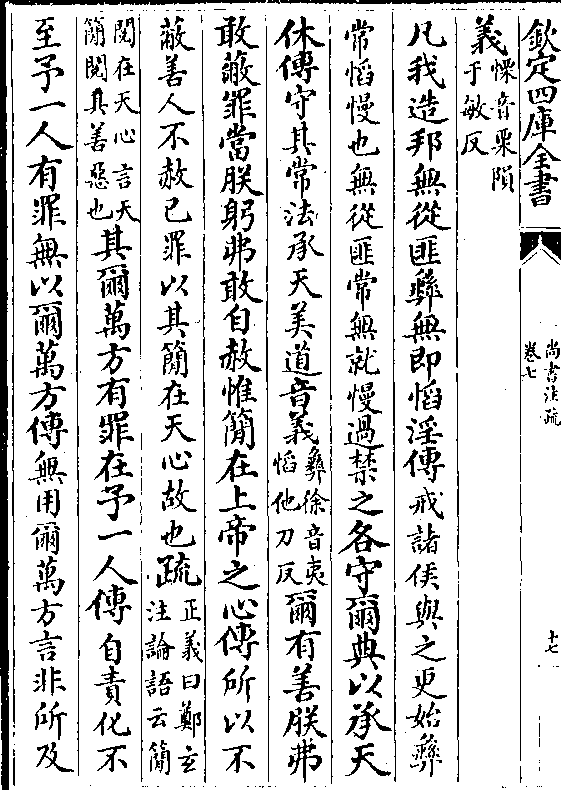 欽定四庫全書
尚書注疏
卷七
十七
義
慄音栗隕
于敏反
凡我造邦無從匪彝無即慆淫傳戒諸侯與之更始彝
常慆慢也無從匪常無就慢過禁之各守爾典以承天
休傳守其常法承天美道音義
彝徐音夷
慆他刀反
爾有善朕弗
敢蔽罪當朕躬弗敢自赦惟簡在上帝之心傳所以不
蔽善人不赦已罪以其簡在天心故也疏
正義曰鄭玄
注論語云簡
閱在天心言天
簡閱其善惡也
其爾萬方有罪在予一人傳自責化不
至予一人有罪無以爾萬方傳無用爾萬方言非所及